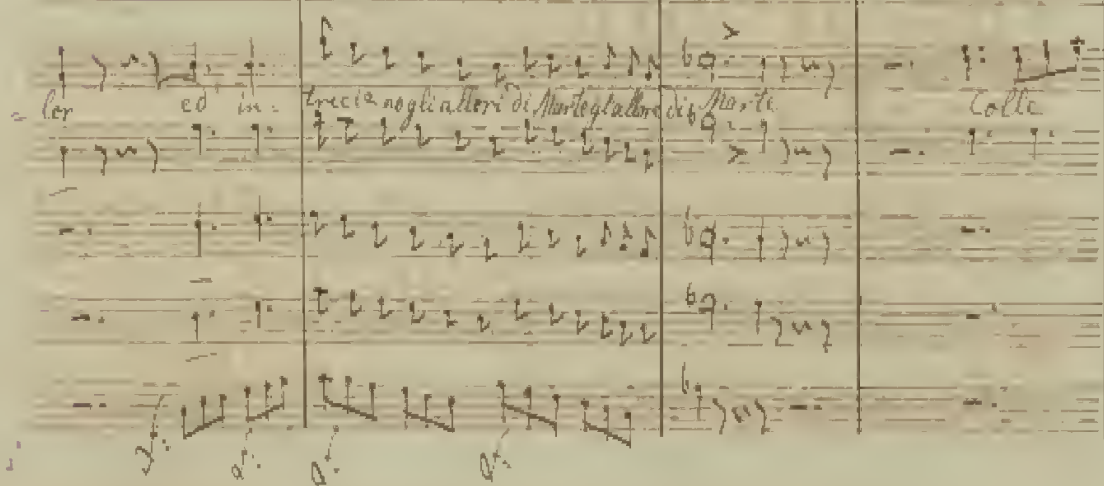 ler ed in= trecia no gli allori di Marte gl allore di Marte Colle